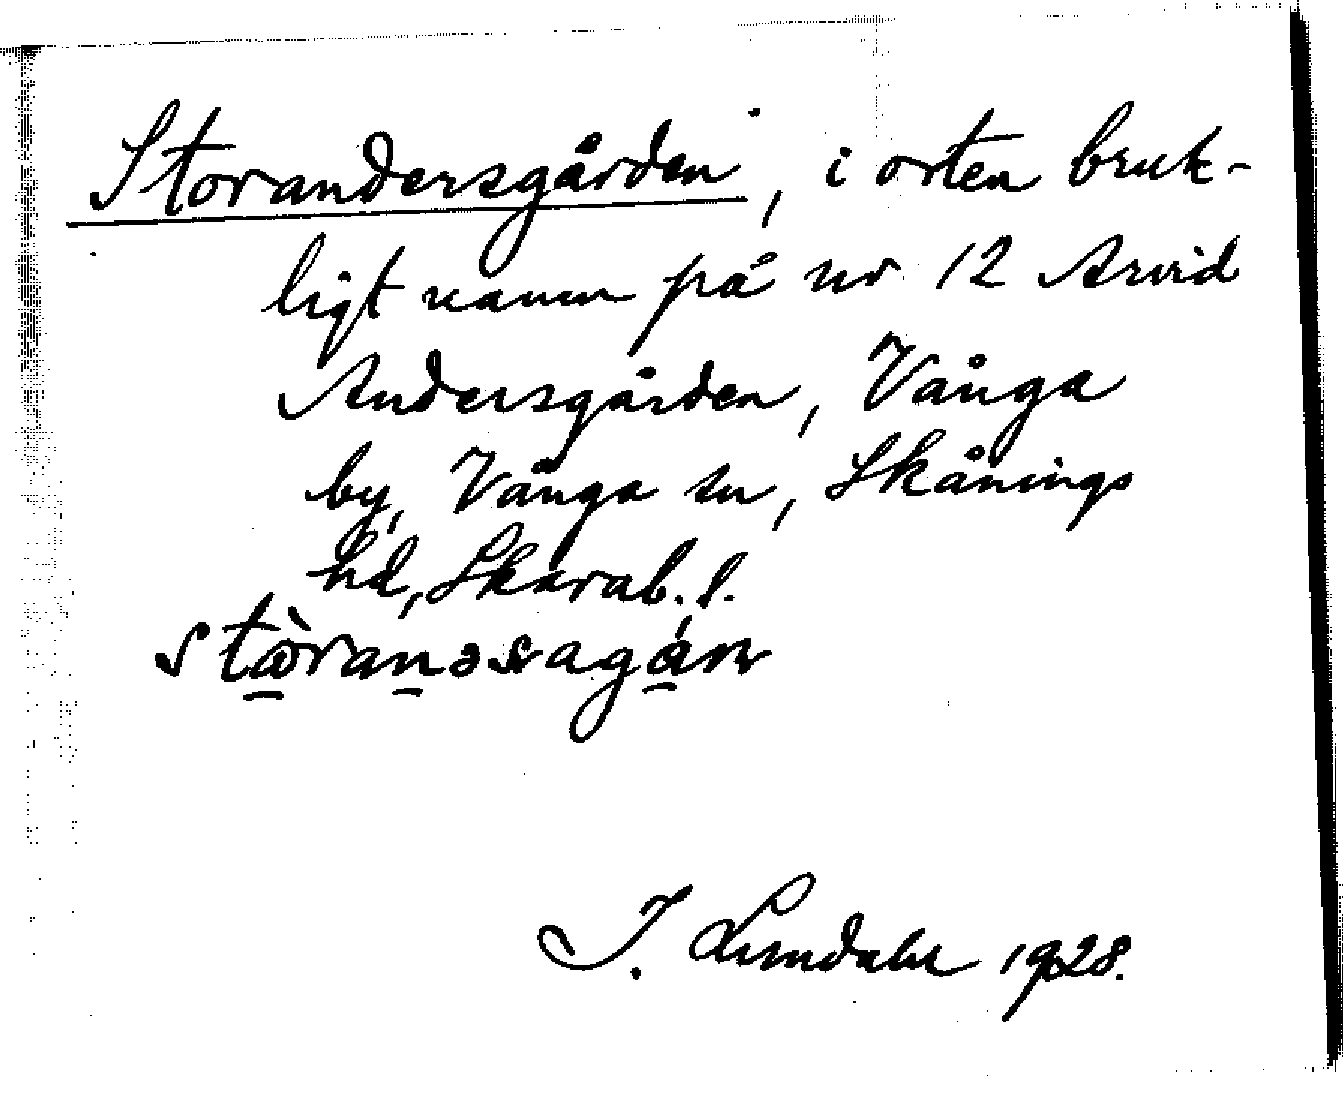 Storandersgården, i orten bruk-
ligt namn på nr 12 Arvid
Andersgården, Vånga
by, Vånga sn, Skånings
hd, Skarab. l.
I. Lundahl 1928.